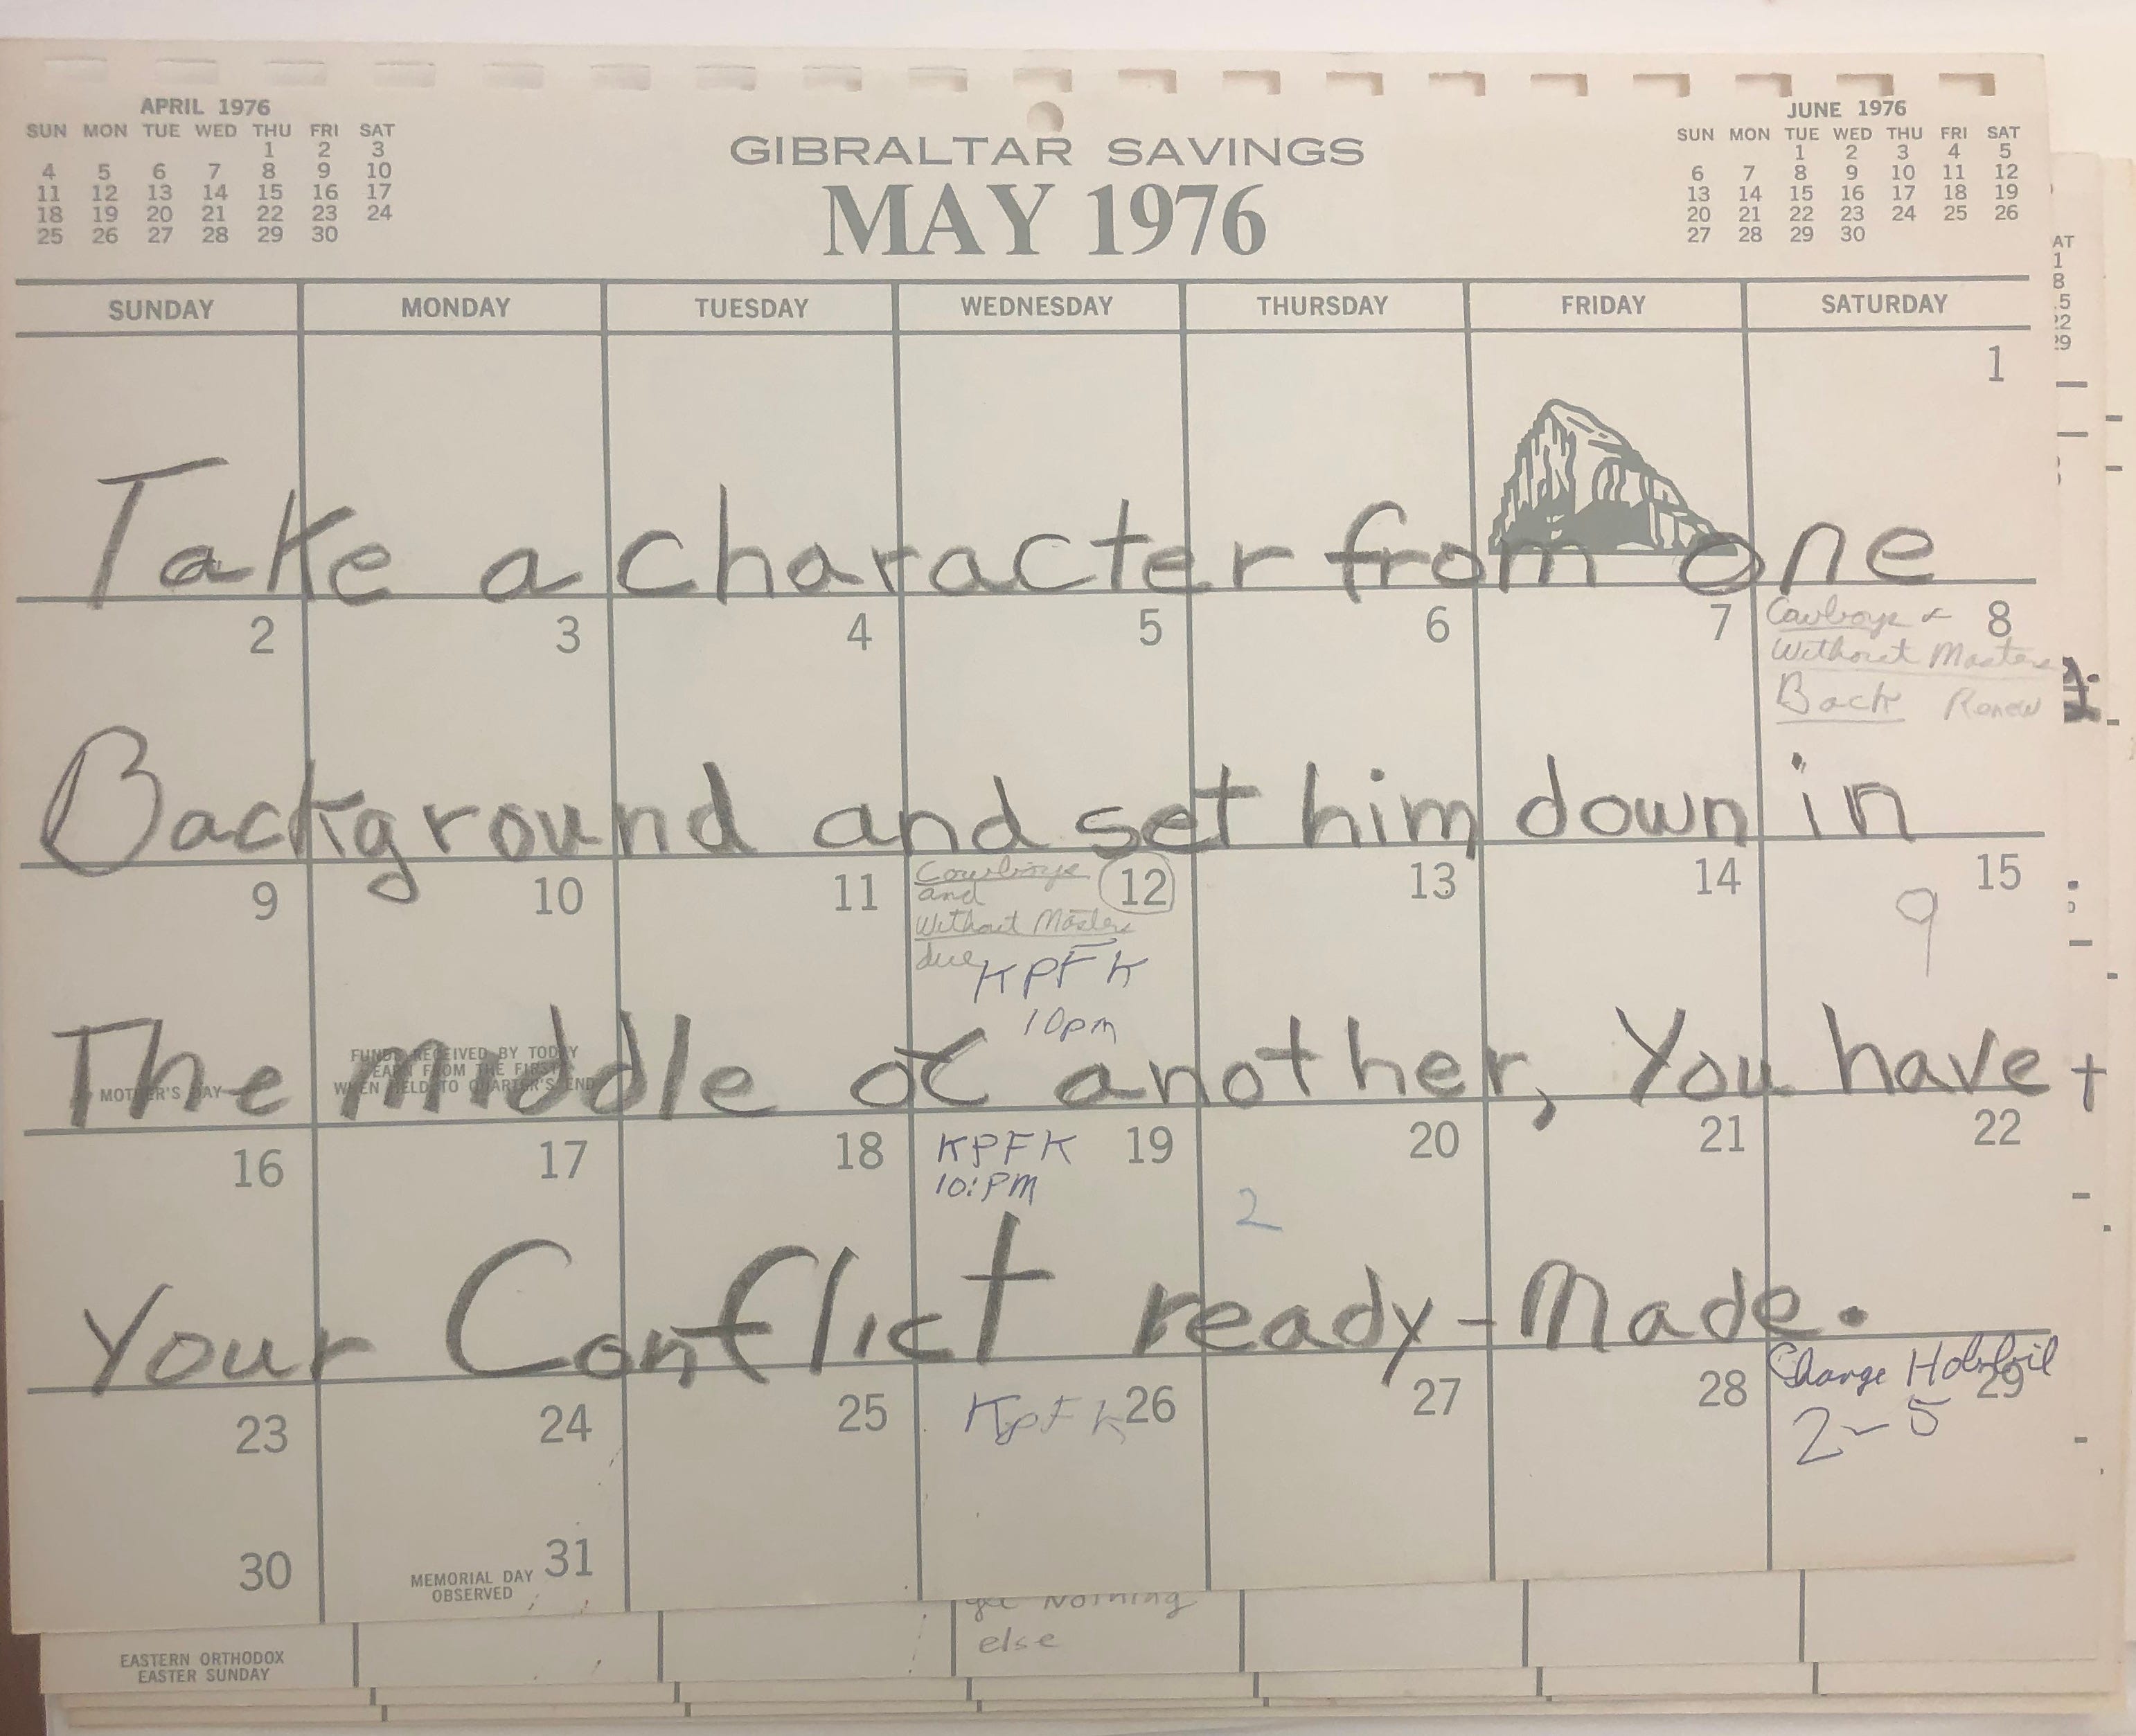 APRIL 1976
SUN MON TUE WED THU FRI SAT
1 2 3
4 5 6 7 8 9 10
11 12 13 14 15 16 17
18 19 20 21 22 23 24
25 26 27 28 29 30
GIBRALTAR SAVINGS
MAY 1976
JUNE 1976
SUN MON TUE WED THU FRI SAT
1 2 3 4 5
6 7 8 9 10 11 12
13 14 15 16 17 18 19
20 21 22 23 24 25 26
27 28 29 30
AT
1
8
15
22
29
SUNDAY MONDAY TUESDAY WEDNESDAY THURSDAY FRIDAY SATURDAY
1
Take a character from one
2 3 4 5 6 7 8
Cowboys &
Without Masters
Back Renew
Background and set him down in
9 10 11 12 13 14 15
Cowboys
and
Without Masters
due
KPFK
10pm
9
MOTHER'S DAY
FUNDS RECEIVED BY TODAY
EARN FROM THE FIRST
WHEN HELD TO QUARTER'S END
The middle of another, You have
16 17 18 19 20 21 22
KPFK
10:PM
2
Your Conflict ready-Made.
23 24 25 26 27 28 29
KPFK
Change
2-5
30 31
MEMORIAL DAY
OBSERVED
Nothing
else
EASTERN ORTHODOX
EASTER SUNDAY